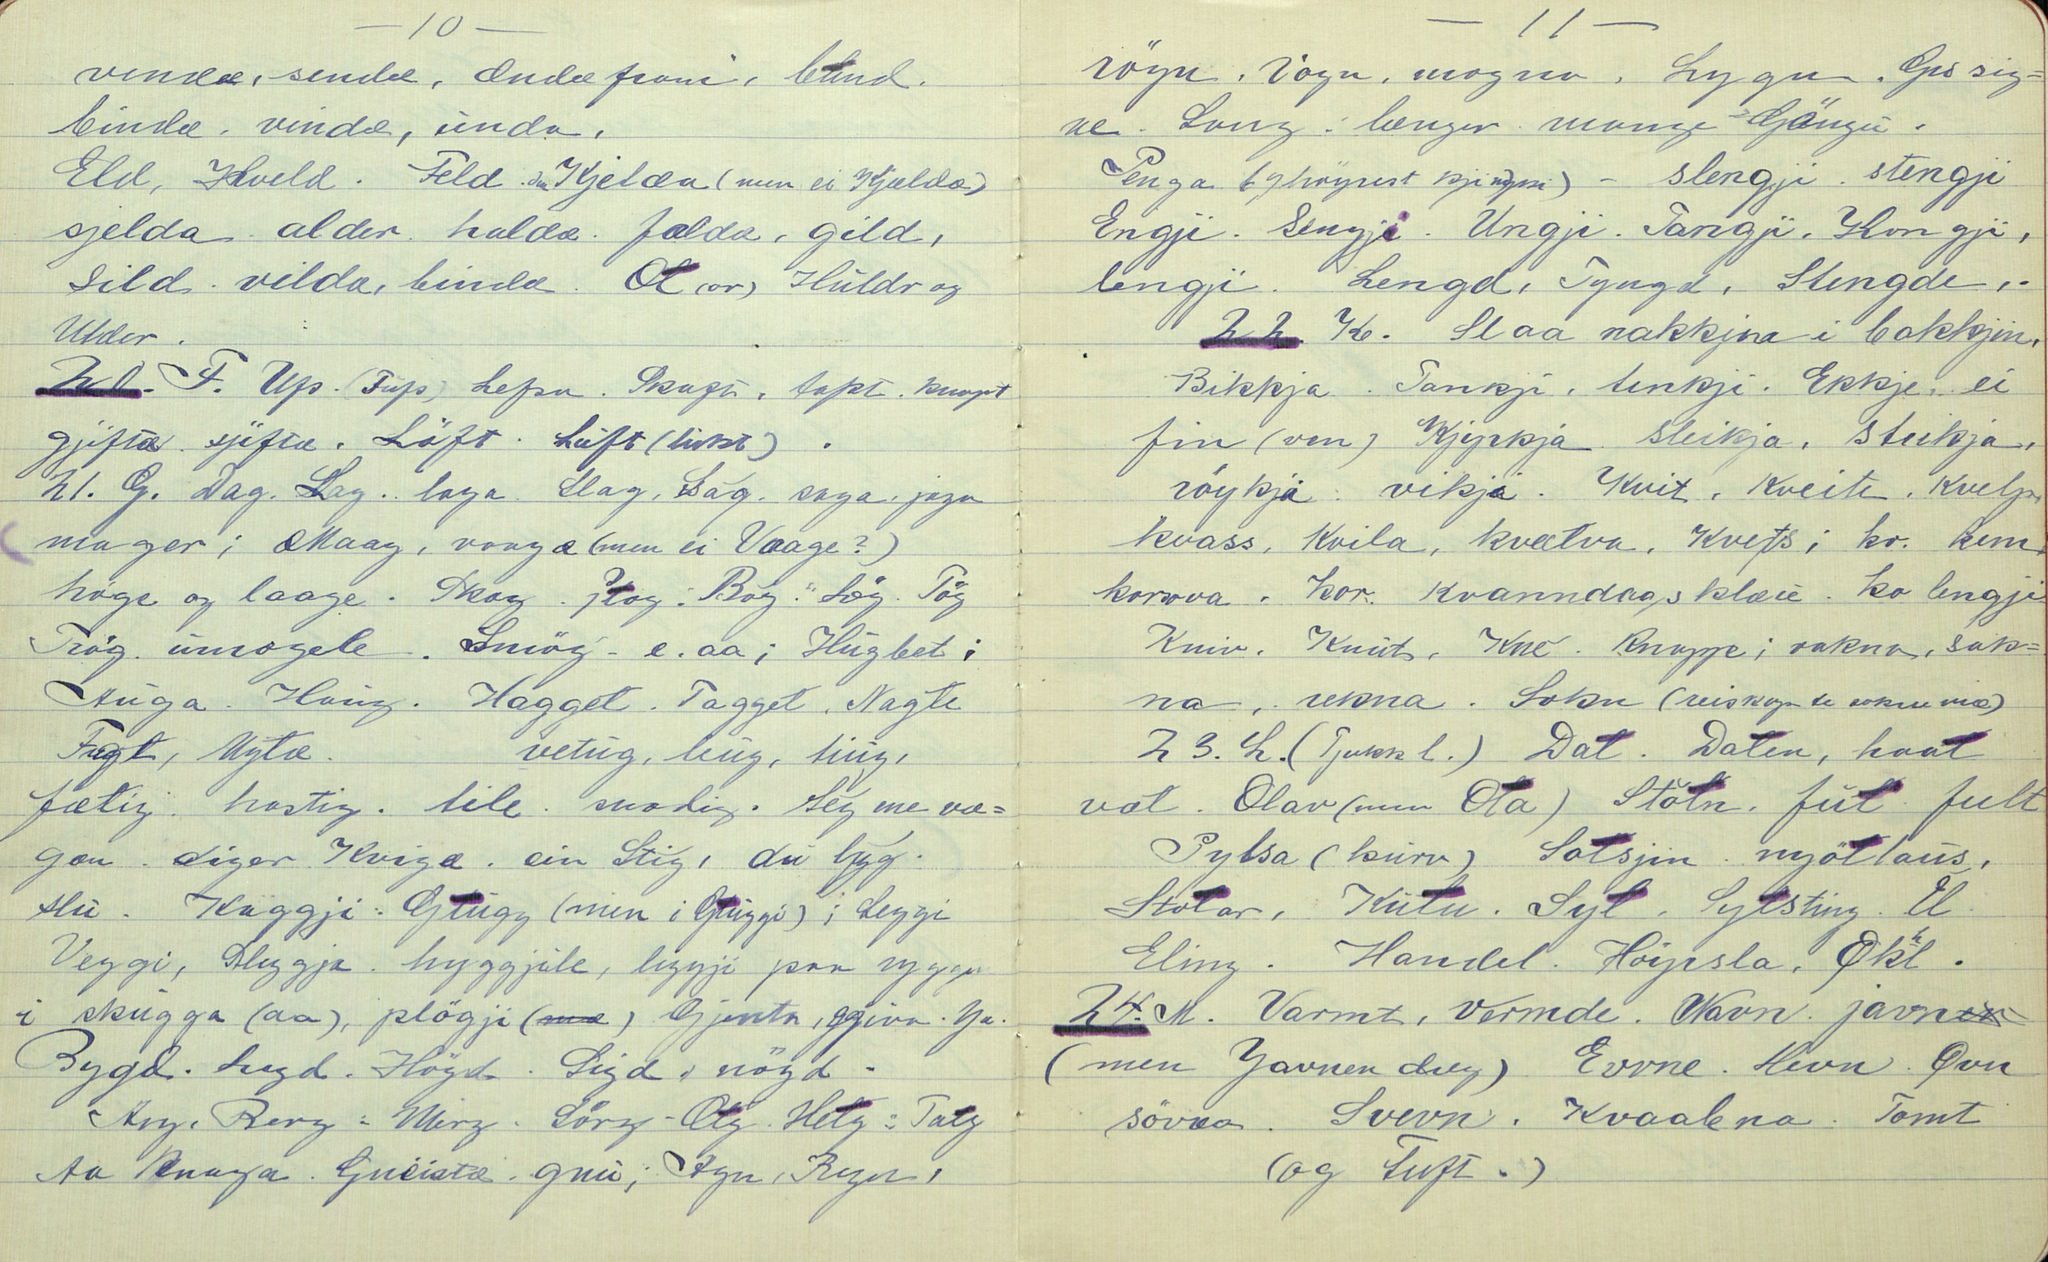 — 10 —
vendæ, sendæ, ændæ fram, blind.
bindæ. vindæ, unda.
Eld, Kveld. Feld. Kjelda (men ei Kjældæ)
sjelda. alder. haldæ. faldæ, gild,
Sild. vilda, bindæ. Ol (or) Huldr og
Ulder.
20. F. Ufs. (Tufs) Lefsa. Skaft, taft. knapt
gjiftæ. sjiftæ. Löft. Luft (lukt).
21. G. Dag. Lag. laga. Slag, Sag. saga. jaga
mager; Maag, vaagæ (men ei Vaage?)
höge og laage. Skog. Plog. Bog. Lög. Tög
Trög. umogele. Smög - e. aa; Hugbet;
Auga. Haug. Hagget. Tagget. Nagte
Fægt, Nytæ. vetug, lug, tiug,
fætig. hastig. lile. modig. Seg me væ=
gæn. diger Kvigæ. ein Stig, du lyg.
slu. Kaggji. Glugg (men i Gluggi); Leggi
Veggi, Sleggja. hyggjile, liggji paa ryggji
i skugga (aa), plögji (ma) Gjenta, gjiva. Ja.
Bygd. Lygd. Högd. Sigd, nögd.
Arg, Berg. Merg. Sörg - Olg. Helg. Talg
Aa Knaga. Gneistæ. gnu; Agn, Regn,
— 11 —
rögn, Vogn, magna, Lygn. Gud sig=
ne. Lang: længer. mange Gängu.
Penga (höyrest kjingji) - slengji. stengji
Engji. Sengji. Ungji. Tangji. Kongji,
lengji. Lengd, Tyngd, Stengde,.
22. K. Slaa nakkjen i bakkjin,
Bikkja. Tankji, tenkji. Ekkje. ei
fin (ven) Kjyrkja. sleikja, steikja,
röykja. vikja. Kvit, Kveite. Kvelp,
kvass, Kvila, kvætva, Kvefs; kr. kem
korava. kor. Kvanndagsklæe. ko lengji
Kniv. Knut, Kne. Knappe; vakna, sak=
na, rekna. Sokn (reiskap te sokne mæ)
23. L. (Tjukk l.) Dal. Dalen, hval
val. Olav (men Ola) Stöln. ful fult
Pylsa (kurv) Solsjin. nyöllaus,
Stolar, Kulu. Syl. Sylsting. El
Eling. Handel. Höyrsla, Økl.
24. M. Varmt, vermde. Navn. javnen
(men Javnen dueg) Evne. Hevn. Ovn
sövna. Svevn. Kvaalena. Tomt
(og Tuft.)